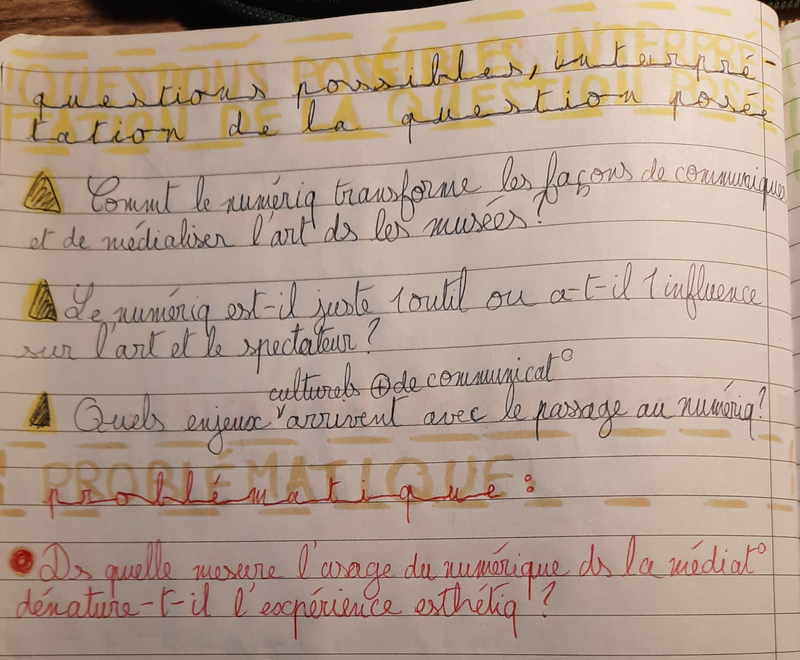 questions possibles, interpré-
tation de la question posée
Commt le numériq transforme les façons de communiquer
et de médialiser l'art ds les musées ?
Le numériq est-il juste 1 outil ou a-t-il 1 influence
sur l'art et le spectateur ?
culturels ⊕ de communicat°
Quels enjeux arrivent avec le passage au numériq ?
PROBLÉMATIQUE :
problématique :
Ds quelle mesure l'usage du numérique ds la médiat°
dénature-t-il l'expérience esthétiq ?